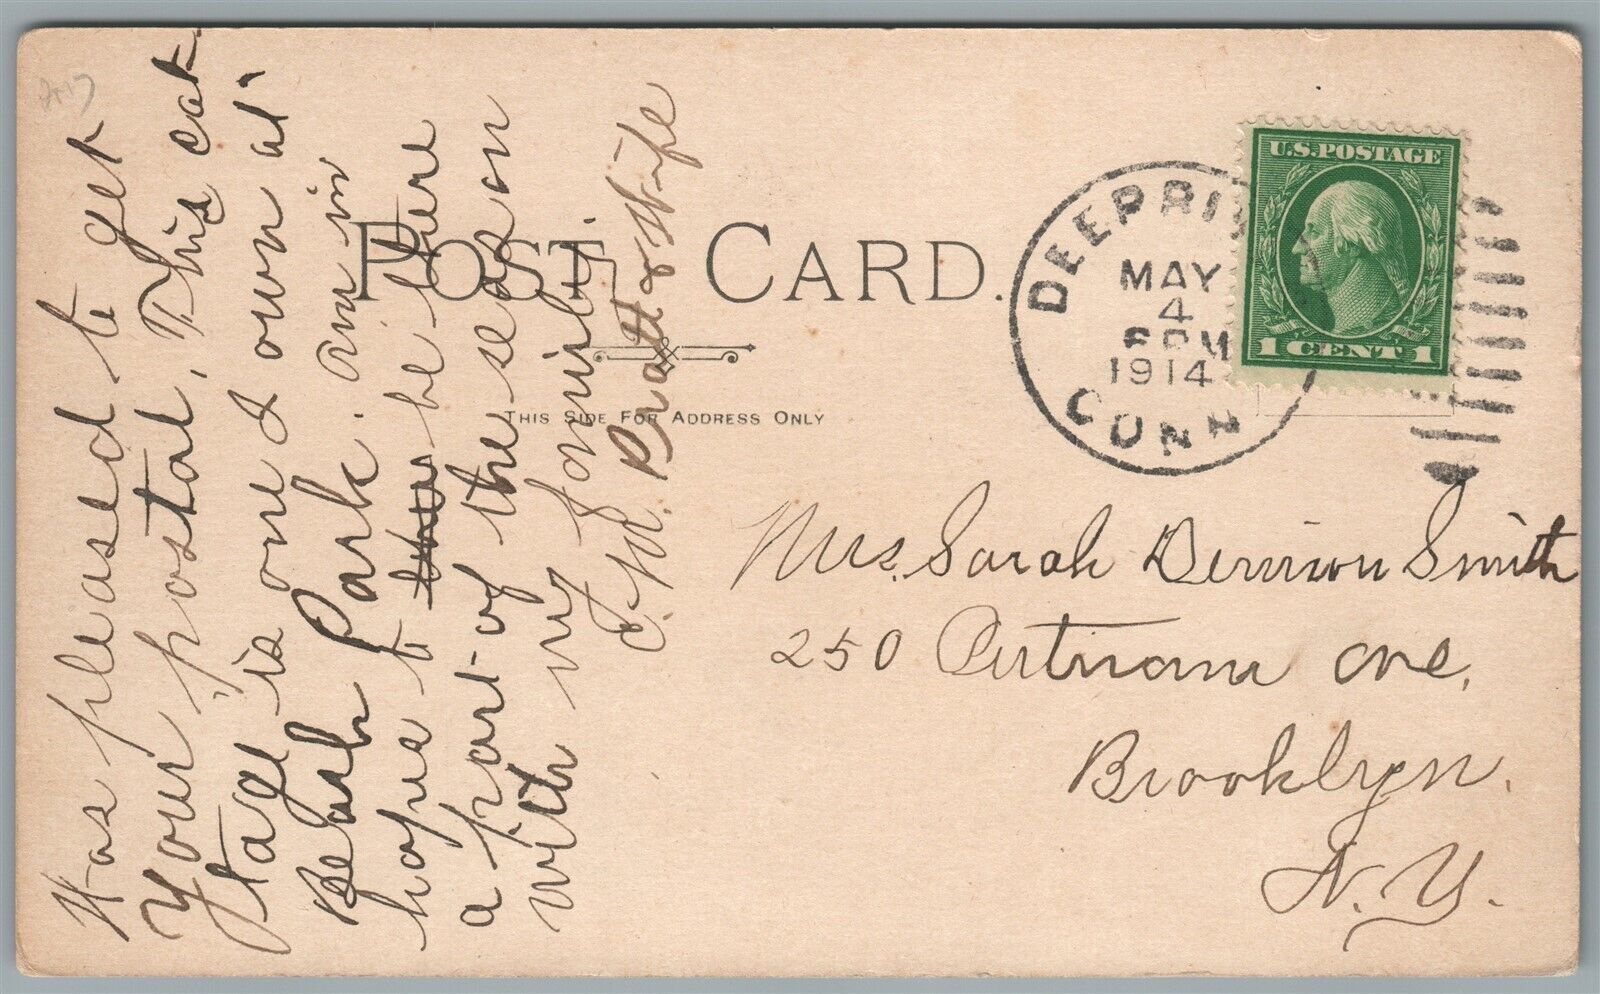 Was pleased to get
your postal, This cot
tage is one I own at
Beach Park. am in
hopes to be there
a part of the season
with my family.
C. M. Pratt & Wife
POST CARD.
THIS SIDE FOR ADDRESS ONLY
DEEP RI
MAY
4
6 PM
1914
CONN
U.S. POSTAGE
1 CENT 1
Mrs. Sarah Denison Smith
250 Putnam ave,
Brooklyn.
N. Y.